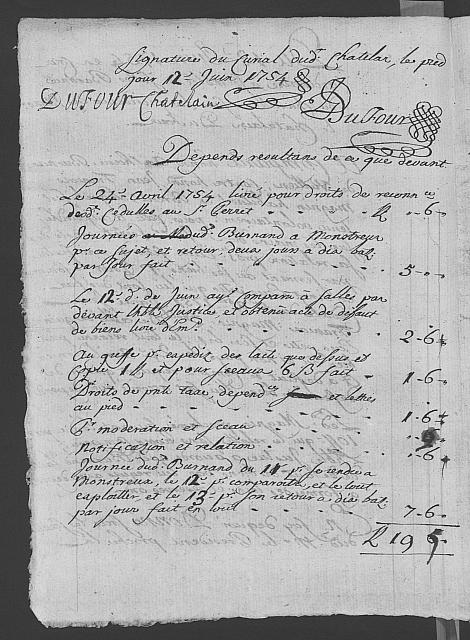 Signature du Curial dud.t Chatelar, le pied
jour 12.e Juin 1754
DuFour Chatelain DuFour
Depends resultans de ce que devant
Le 24.e Avril 1754 livré pour droits de reconn.ces
des d.t Cedulles au S.r Perret - - - - - 6 -
Journée dud.t Burnand a Monstreux
p.r ce Sujet, et retour, deux jours a dix baz
par Jour fait - - - - - 5 - - -
Le 12.e d. de Juin ay.t comparu a Salles par
devant Justice et obtenu acte de defaut
de biens livré - - - - - 2 - 6 -
Au greffe p.r expedit. des l'acte que dessus et
Copie et pour sceaux 6 ß fait - - 1 - 6 -
Droits de taxe, depend.ces et lettres
au pied - - - - - 1 - 6
P.r moderation et sceau - - - -
Notification et relation - - - - 6
Journée dud.t Burnand du 11.e p.r se rendre a
Monstreux, le 12.e comparoitre, et le tout
exploiter, et le 13.e p.r son retour a dix baz
par jours fait en tout - - - - 7 - 6 -
19